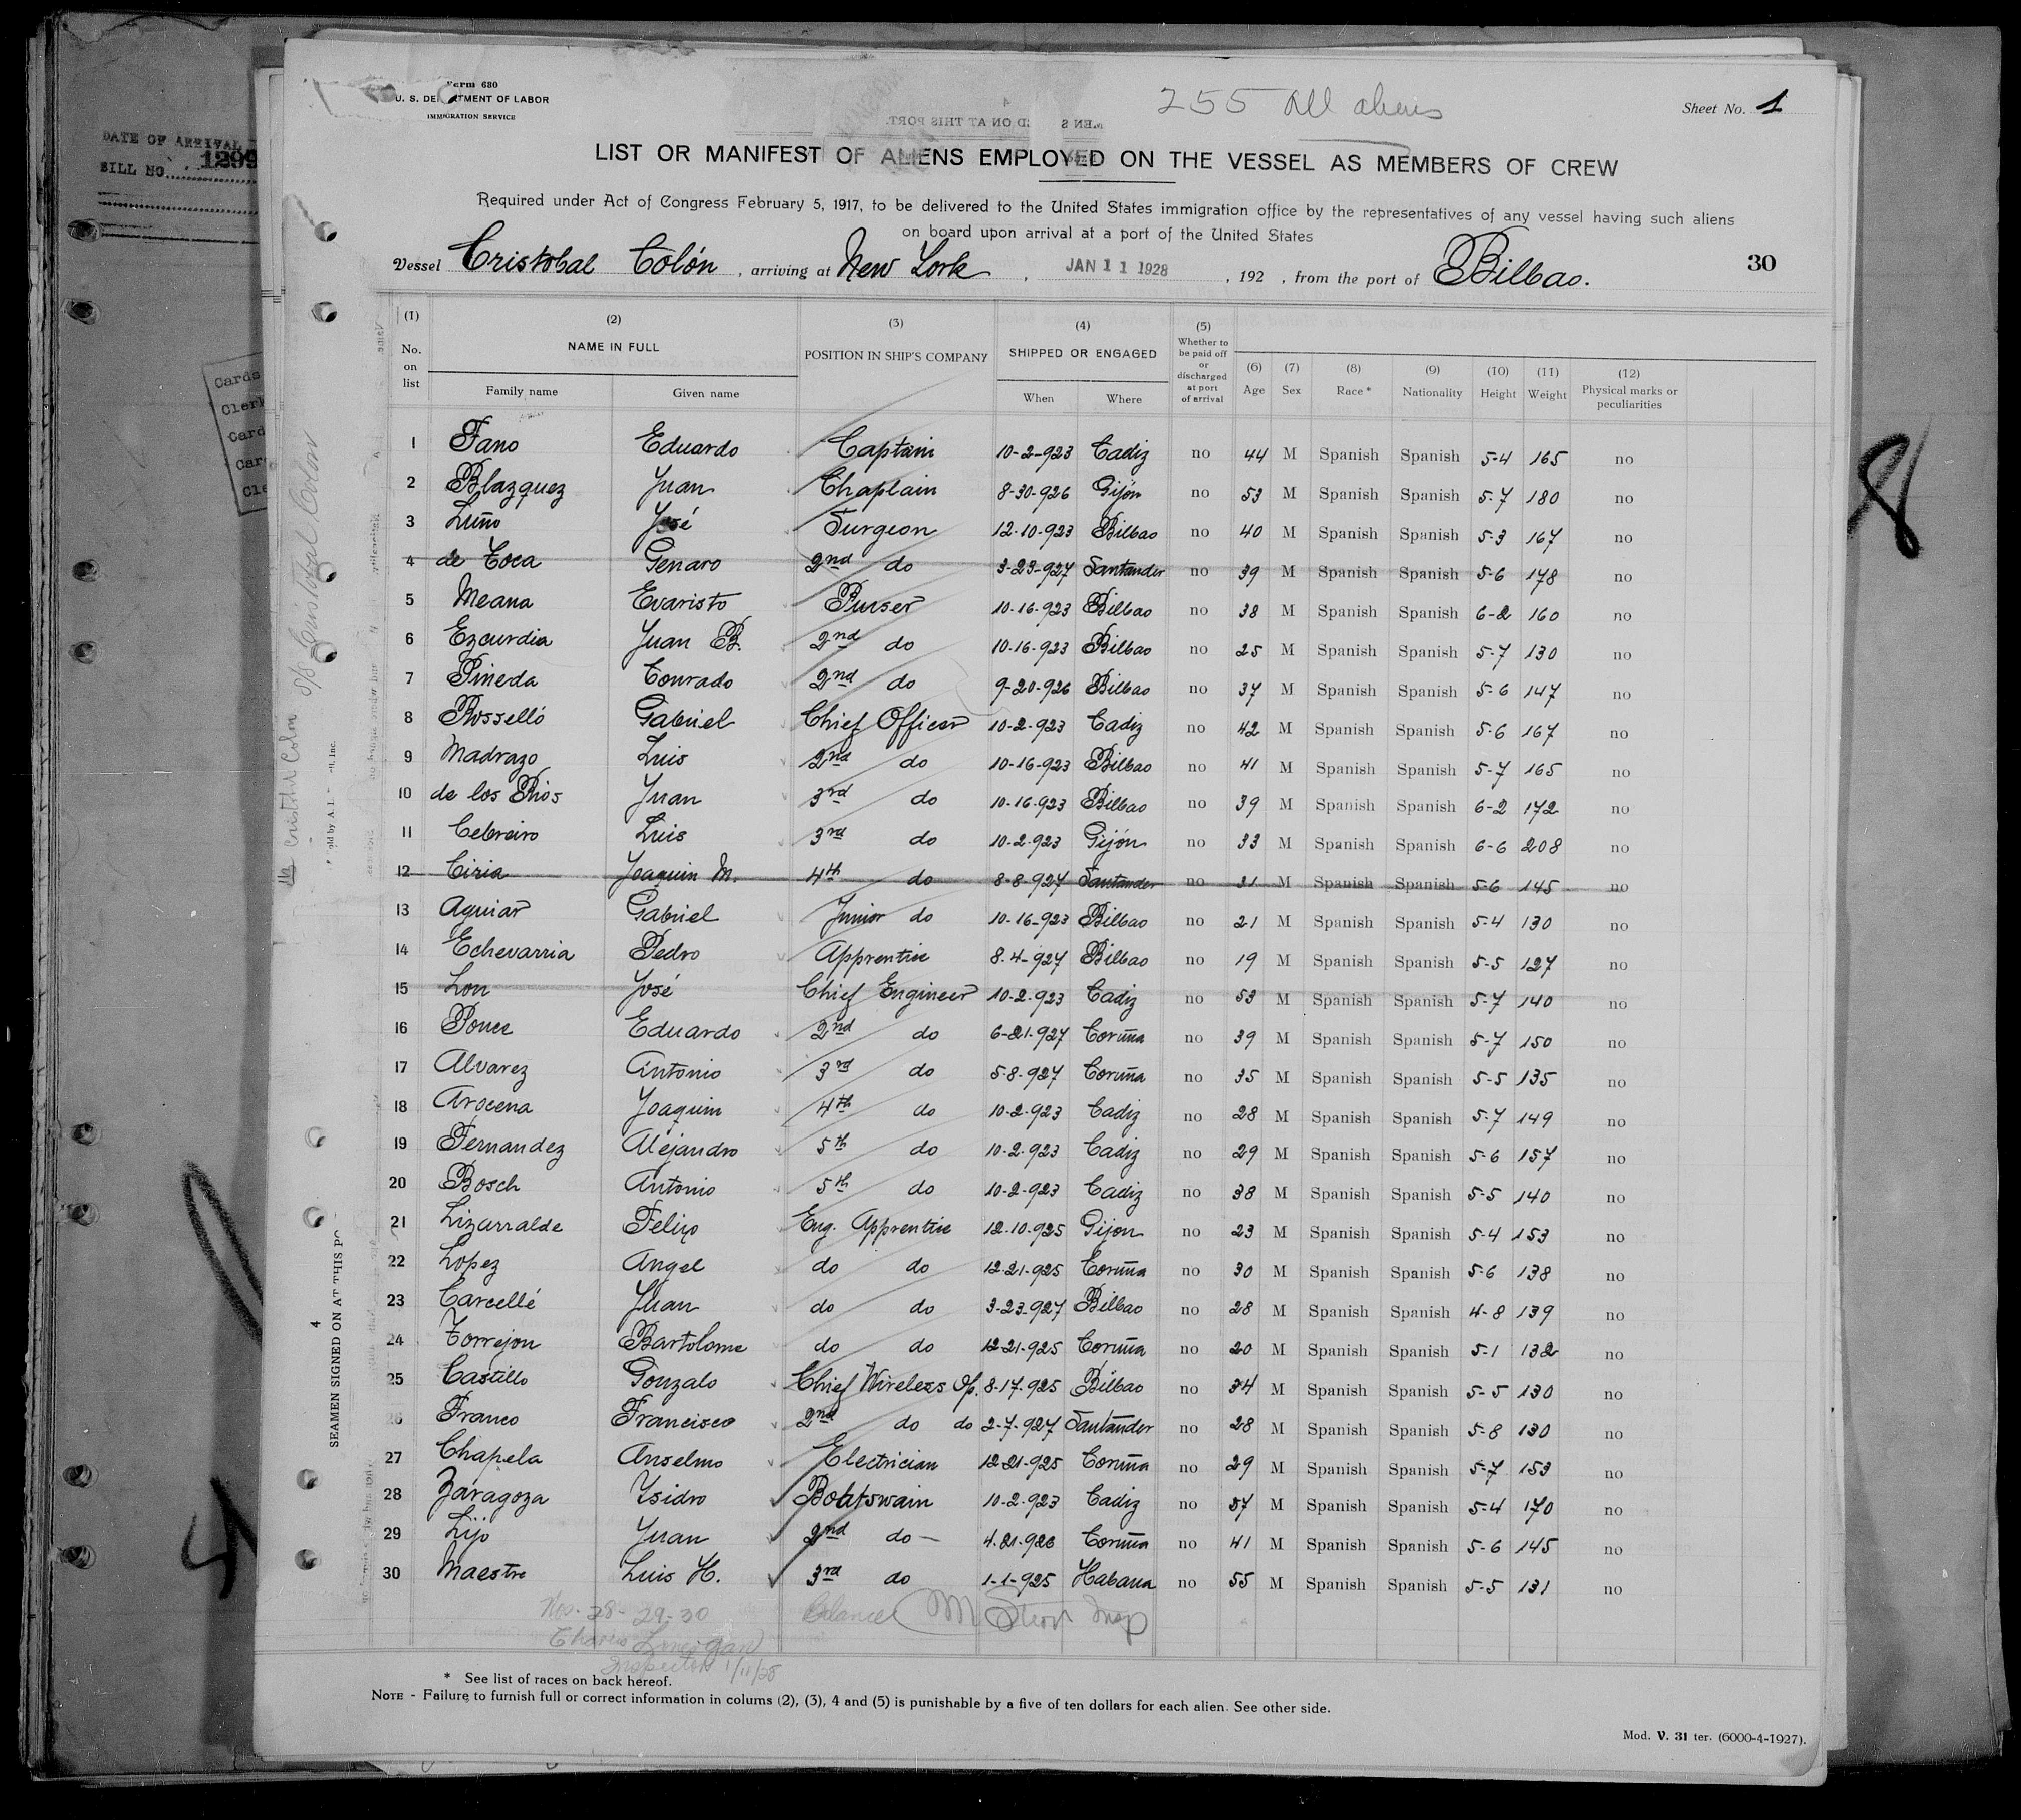 Form 680
U. S. DEPARTMENT OF LABOR
IMMIGRATION SERVICE
255 all aliens
Sheet No. 1
DATE OF ARRIVAL
BILL NO. 1299
LIST OR MANIFEST OF ALIENS EMPLOYED ON THE VESSEL AS MEMBERS OF CREW
Required under Act of Congress February 5, 1917, to be delivered to the United States immigration office by the representatives of any vessel having such aliens
on board upon arrival at a port of the United States
Vessel Cristobal Colón, arriving at New York, JAN 11 1928, 192 , from the port of Bilbao. 30
(1) No. on list (2) NAME IN FULL Family name Given name (3) POSITION IN SHIP'S COMPANY (4) SHIPPED OR ENGAGED When Where (5) Whether to be paid off or discharged at port of arrival (6) Age (7) Sex (8) Race * (9) Nationality (10) Height (11) Weight (12) Physical marks or peculiarities
1 Fano Eduardo Captain 10-2-923 Cadiz no 44 M Spanish Spanish 5-4 165 no
2 Blazquez Juan Chaplain 8-30-926 Gijón no 53 M Spanish Spanish 5-7 180 no
3 Luño José Surgeon 12-10-923 Bilbao no 40 M Spanish Spanish 5-3 167 no
4 de Toca Genaro 2nd do 3-23-927 Santander no 39 M Spanish Spanish 5-6 178 no
5 Meana Evaristo Purser 10-16-923 Bilbao no 38 M Spanish Spanish 6-2 160 no
6 Ezcurdia Juan B. 2nd do 10-16-923 Bilbao no 25 M Spanish Spanish 5-7 130 no
7 Pineda Conrado 2nd do 9-20-926 Bilbao no 37 M Spanish Spanish 5-6 147 no
8 Rosselló Gabriel Chief Officer 10-2-923 Cadiz no 42 M Spanish Spanish 5-6 167 no
9 Madrazo Luis 2nd do 10-16-923 Bilbao no 41 M Spanish Spanish 5-7 165 no
10 de los Rios Juan 3rd do 10-16-923 Bilbao no 39 M Spanish Spanish 6-2 172 no
11 Cebreiro Luis 3rd do 10-2-923 Gijón no 33 M Spanish Spanish 6-6 208 no
12 Ciria Joaquin M. 4th do 8-8-927 Santander no 31 M Spanish Spanish 5-6 145 no
13 Aguiar Gabriel Junior do 10-16-923 Bilbao no 21 M Spanish Spanish 5-4 130 no
14 Echevarria Pedro Apprentice 8-4-927 Bilbao no 19 M Spanish Spanish 5-5 127 no
15 Lon José Chief Engineer 10-2-923 Cadiz no 53 M Spanish Spanish 5-7 140 no
16 Ponce Eduardo 2nd do 6-21-927 Coruña no 39 M Spanish Spanish 5-7 150 no
17 Alvarez Antonio 3rd do 5-8-927 Coruña no 35 M Spanish Spanish 5-5 135 no
18 Arocena Joaquin 4th do 10-2-923 Cadiz no 28 M Spanish Spanish 5-7 149 no
19 Fernandez Alejandro 5th do 10-2-923 Cadiz no 29 M Spanish Spanish 5-6 157 no
20 Bosch Antonio 5th do 10-2-923 Cadiz no 38 M Spanish Spanish 5-5 140 no
21 Lizarralde Felix Eng. Apprentice 12-10-925 Gijon no 23 M Spanish Spanish 5-4 153 no
22 Lopez Angel do do 12-21-925 Coruña no 30 M Spanish Spanish 5-6 138 no
23 Carcellé Juan do do 3-23-927 Bilbao no 28 M Spanish Spanish 4-8 139 no
24 Torrejon Bartolome do do 12-21-925 Coruña no 20 M Spanish Spanish 5-1 132 no
25 Castillo Gonzalo Chief Wireless Op. 8-17-925 Bilbao no 34 M Spanish Spanish 5-5 130 no
26 Franco Francisco 2nd do do 2-7-927 Santander no 28 M Spanish Spanish 5-8 130 no
27 Chapela Anselmo Electrician 12-21-925 Coruña no 29 M Spanish Spanish 5-7 153 no
28 Zaragoza Ysidro Boatswain 10-2-923 Cadiz no 57 M Spanish Spanish 5-4 170 no
29 Lijo Juan 2nd do - 4-21-926 Coruña no 41 M Spanish Spanish 5-6 145 no
30 Maestre Luis H. 3rd do 1-1-925 Habana no 55 M Spanish Spanish 5-5 131 no
Nos. 28-29-30 Balance
Inspector 1/11/28
* See list of races on back hereof.
NOTE - Failure to furnish full or correct information in colums (2), (3), 4 and (5) is punishable by a five of ten dollars for each alien. See other side.
Mod. V. 31 ter. (6000-4-1927).
S/S Cristobal Colon
SEAMEN SIGNED ON AT THIS PO
4
Cards
Clerk
Card